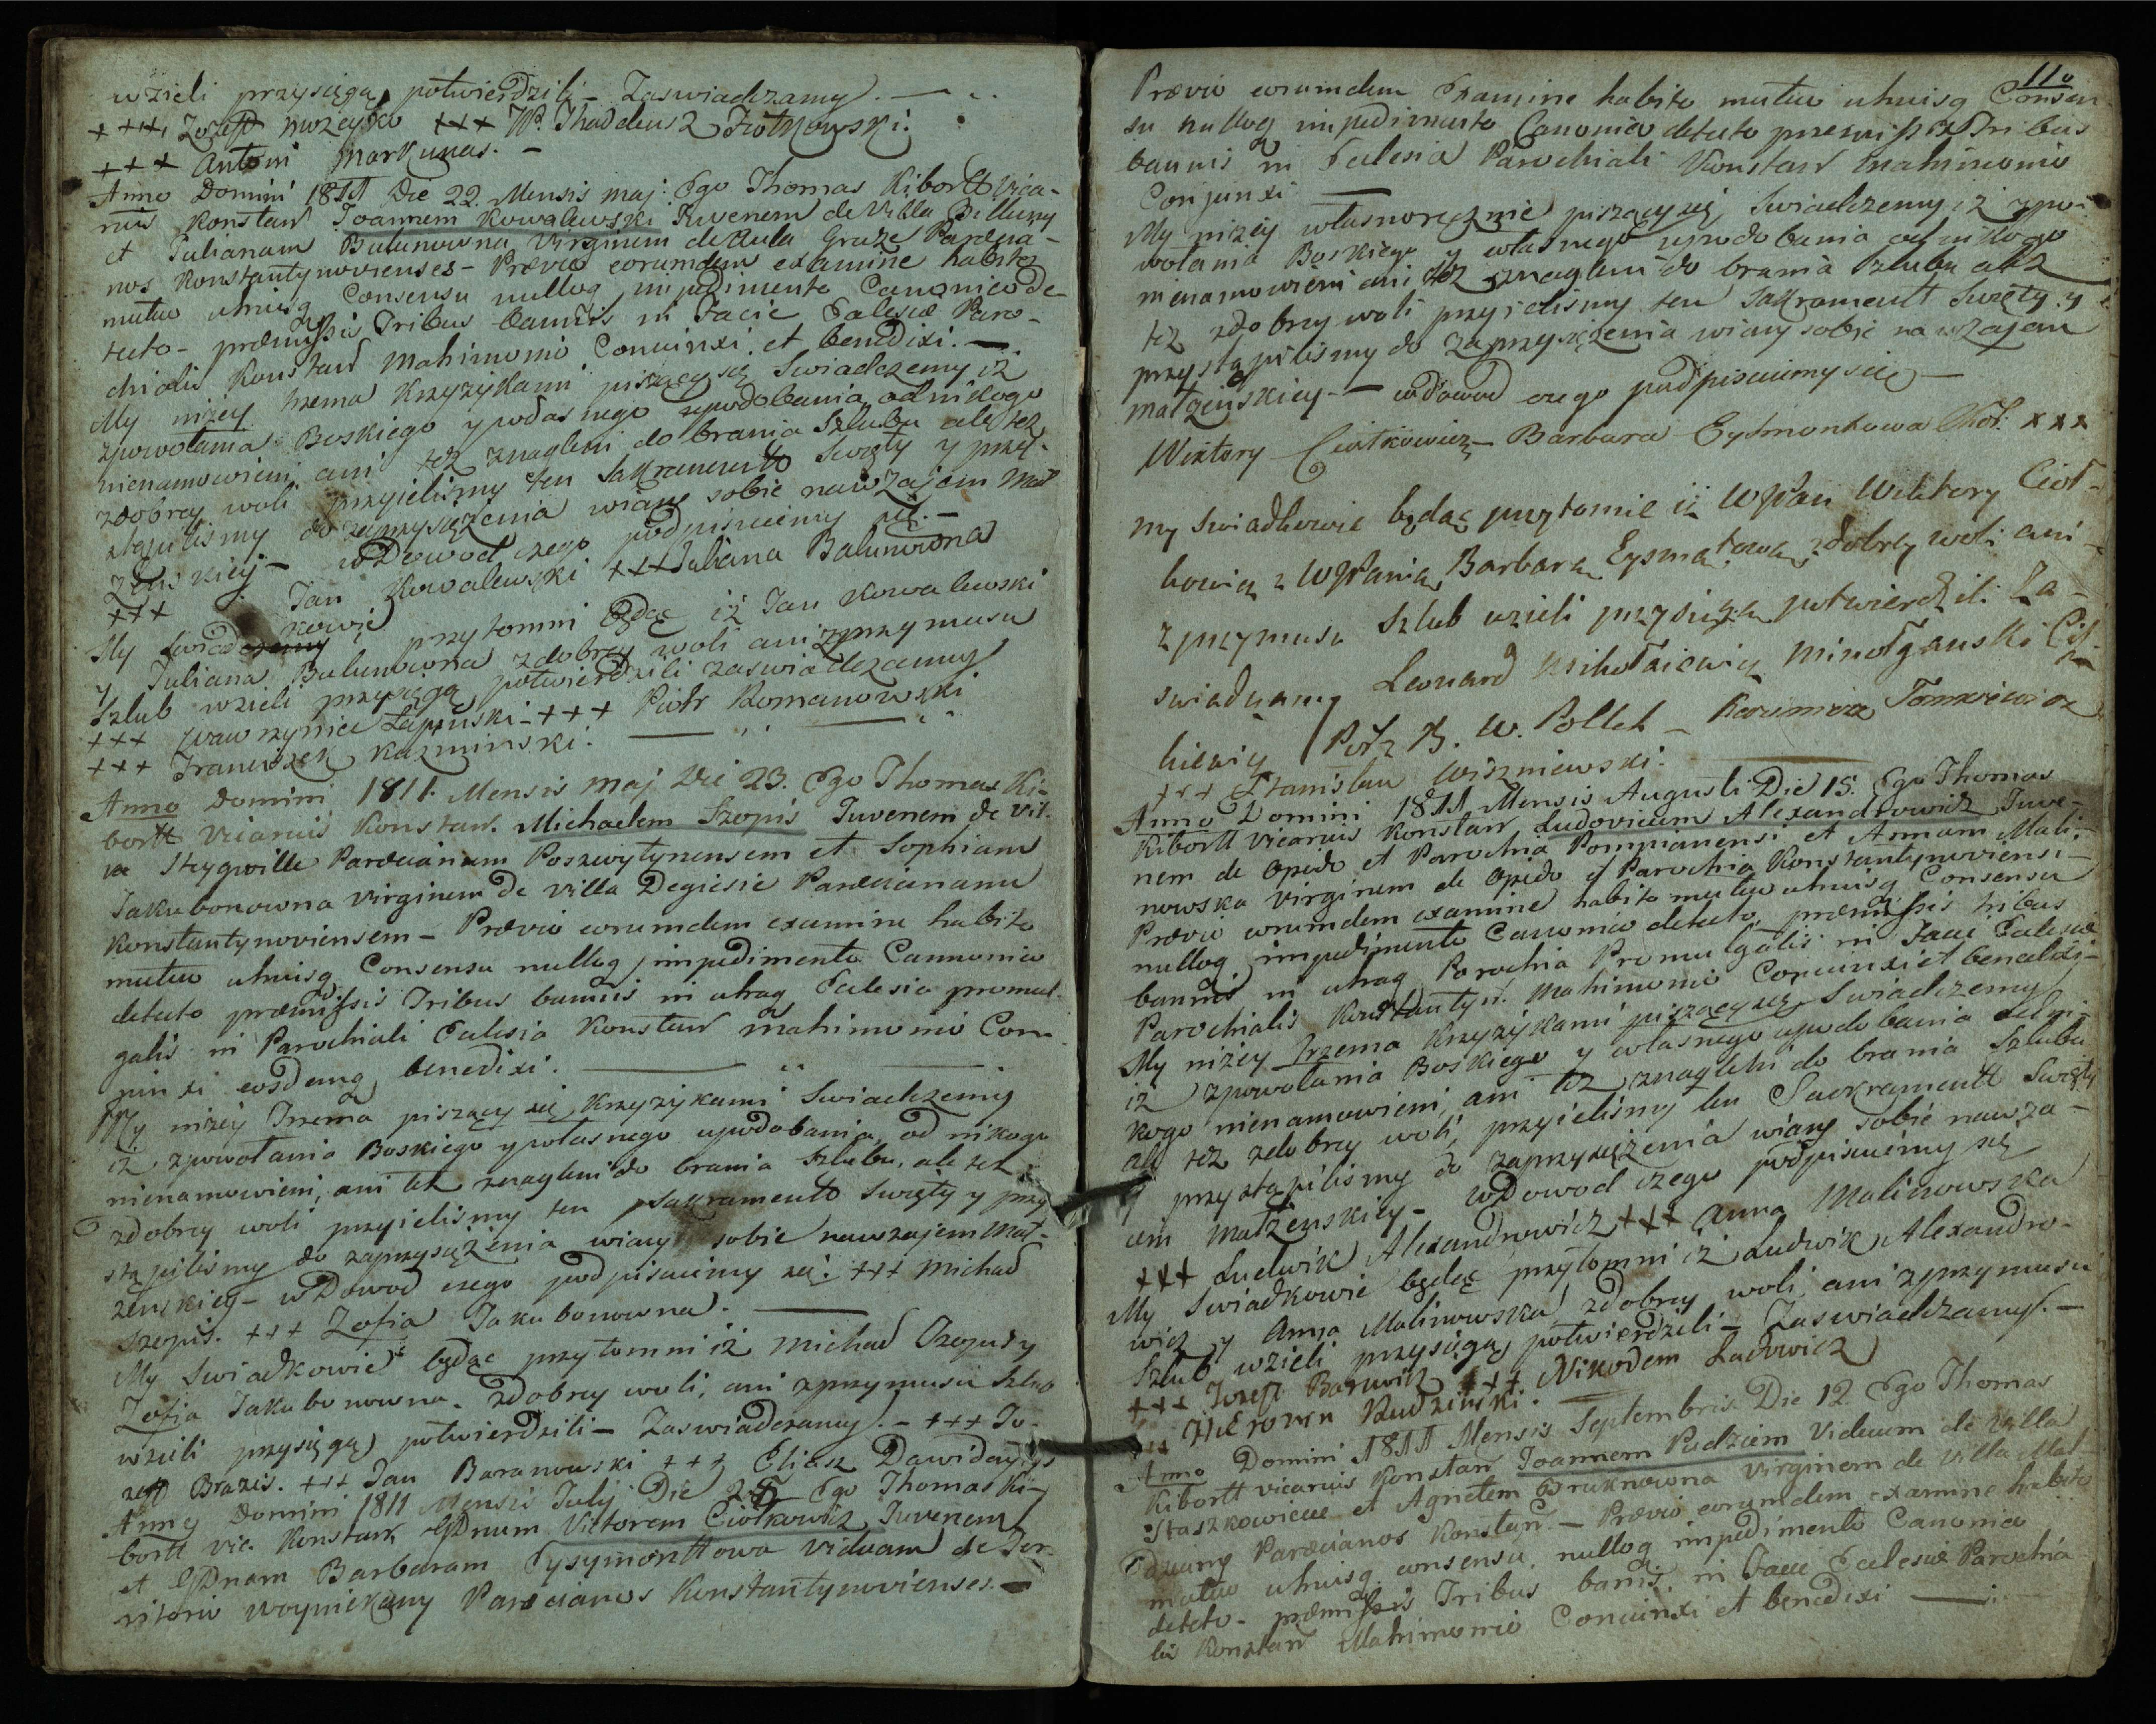 wzieli przysięgą potwierdzili – Zaswiadczamy. —
++++, Jozeff Mozeyko +++ W. Thaddeusz Zutkowski.
+++ Antoni Markunas. –
Anno Domini 1811 Die 22. Mensis Maj. Ego Thomas Kibortt Vica-
rius Konstan Joannem Kowalewski Juvenem de Villa Billuny
et Julianam Balunowna Virginem de Aula Gruże Parœcia-
nos Konstantynovienses – Prævio eorumdem examine habito
mutuo utriusq Consensu nulloq impedimento Canonico de-
tecto – præmissis Tribus bannis in Facie Eclesiæ Paro-
chialis Konstan Matrimonio Conuinxi et benedixi. —
My niżey trzema Krzyzykami piszący się Swiadczemy iż
zpowołania Boskiego y własnego upodobania od nikogo
nienamowieni, ani też znagleni do brania Szlubu ale też
zdobrey woli przyieliśmy ten Sakramentt Swięty y przy-
stąpiliśmy do zaprzysiężenia wiary sobie nawzajem Mał
żenskiey – wDowod czego podpisuiemy się. –
+++ Jan Kowalewski +++ Juliana Balunowna
My Swiadkowie przytomni będąc iż Jan Kowalewski
y Juliana Balunowna zdobrey woli ani zprzymusu
Szlub wzieli przysięgą potwierdzili zaswiadczamy
+++ Wawrzyniec Łapinski – +++ Piotr Romanowski
+++ Franciszek Kazminski. —
Anno Domini 1811. Mensis Maj Die 23. Ego Thomas Ki-
bortt Vicarius Konstan. Michaelem Szopis Juvenem de Vil-
la Strygwille Parœcianum Poszwytynensem et Sophiam
Jakubonowna Virginem de Villa Degiesie Parœcianam
Konstantynoviensem – Prævio eorumdem examine habito
mutuo utriusq Consensu nulloq impedimento Cannonico
detecto præmissis Tribus bannis in utraq Eclesia promul-
gatis in Parochiali Eclesia Konstan Matrimonio Con-
iunxi eosdemq benedixi. —
My niżey Trzema piszący się Krzyzykami Swiadczemy
iż zpowołania Boskiego y własnego upodobania, od nikogo
nienamowieni, ani też znagleni do brania Szlubu, ale też
zdobrey woli przyieliśmy ten Sakramentt Swięty y przy
stąpiliśmy do zaprzysiężenia wiary sobie nawzajem Mał-
żenskiey – wDowod czego podpisuiemy się. +++ Michał
Szopis. +++ Zofia Jakubonowna. —
My Swiadkowie będąc przytomni iż Michał Szopis y
Zofia Jakubonowna. Zdobrey woli, ani zprzymusu Szlub
wzieli przysięgą potwierdzili – Zaswiadczamy. – +++ Jo-
zeff Brazis. +++ Jan Baranowski +++ Eliasz Dawidayt
Anno Domini 1811 Mensis July Die 25 Ego Thomas Ki-
bortt Vic. Konstan GDnum Victorem Ciotkowicz Juvenem
et GDnam Barbaram Eysymonttowa Viduam de Ter-
ritorio Woynickany Parœcianos Konstantynovienses. –
110
Prævio eorumdem Examine habito mutuo utriusq Consen-
su nulloq impedimento Canonico detecto præmissis Tribus
bannis in Eclesia Parochiali Konstan Matrimonio
Conjunxi —
My niżey własnoręcznie piszący się, Swiadczemy iż zpo-
wołania Boskiego y własnego upodobania od nikogo
nienamowieni ani też znagleni do brania Szlubu ale
też zdobrey woli przyieliśmy ten Sakramentt Swięty y
przystąpiliśmy do zaprzysiężenia wiary sobie nawzajem
małżenskiey – wdowod czego podpisuiemy się —
Wiktory Ciotkowicz – Barbara Eysmontowa +++
my Swiadkowie będąc przytomnie iż WJPan Wiktory Ciot-
kowicz z WJPanią Barbarą Eysmątową zdobrey woli ani
z przymusu Szlub wzieli przysięgą potwierdzili Za-
swiadczamy Leonard Mikołaiewicz
+++ Stanisław Wiszniewski. Kazimierz Tomkiewicz
Anno Domini 1811 Mensis Augusti Die 15. Ego Thomas
Kibortt Vicarius Konstan Ludovicum Alexandrowicz Juve-
nem de Opido et Parochia Pompianensi et Annam Mali-
nowska Virginem de Opido et Parochia Konstantynoviensi –
Prævio eorumdem examine habito mutuo utriusq Consensu
nulloq impedimento Canonico detecto, præmissis tribus
bannis in utraq Parochia Promulgatis in Facie Eclesiæ
Parochialis Konstantyn. Matrimonio Conuinxi et benedixi –
My niżey trzema Krzyzykami piszący się Swiadczemy
iż zpowołania Boskiego y własnego upodobania od ni-
kogo nienamowieni, ani też znagleni do brania Szlubu
ale też zdobrey woli, przyieliśmy ten Sackramentt Swięty
y przystąpiliśmy do zaprzysiężenia wiary sobie nawza-
iem Małżenskiey – wDowod czego podpisuiemy się
+++ Ludwik Alexandrowicz +++ Anna Malinowska
My Swiadkowie będąc przytomni iż Ludwik Alexandro-
wicz y Anna Malinowska zdobrey woli, ani zprzymusu
Szlub wzieli przysięgą potwierdzili – Zaswiadczamy. –
+++ Jozeff Barwicz +++ Nikodem Ladowicz
+++ Hieronim Rudzinski. —
Anno Domini 1811 Mensis Septembris Die 12 Ego Thomas
Kibortt Vicarius Konstan Joannem Pudziem Viduum de Villa
Staszkowicze et Agnetem Bruknowna Virginem de Villa Mal
dziuny Parœcianos Konstan. – Prævio eorumdem examine habito
mutuo utriusq consensu, nulloq impedimento Canonico
detecto – præmissis Tribus banis, in Facie Eclesiæ Parochia
lis Konstan Matrimonio Conuinxi et benedixi —